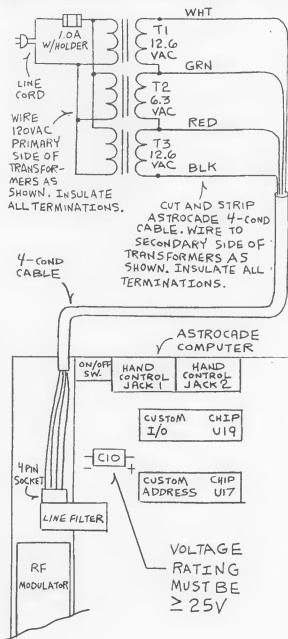 WHT
1.0A
W/HOLDER
T1
12.6
VAC
GRN
LINE
CORD
T2
6.3
VAC
RED
WIRE
120VAC
PRIMARY
SIDE OF
TRANSFOR-
MERS AS
SHOWN. INSULATE
ALL TERMINATIONS.
T3
12.6
VAC
BLK
CUT AND STRIP
ASTROCADE 4-COND
CABLE. WIRE TO
SECONDARY SIDE OF
TRANSFORMERS AS
SHOWN. INSULATE ALL
TERMINATIONS.
4-COND
CABLE
ASTROCADE
COMPUTER
ON/OFF
SW.
HAND
CONTROL
JACK 1
HAND
CONTROL
JACK 2
CUSTOM CHIP
I/O U19
- C10 +
CUSTOM CHIP
ADDRESS U17
4 PIN
SOCKET
LINE FILTER
RF
MODULATOR
VOLTAGE
RATING
MUST BE
≥ 25V